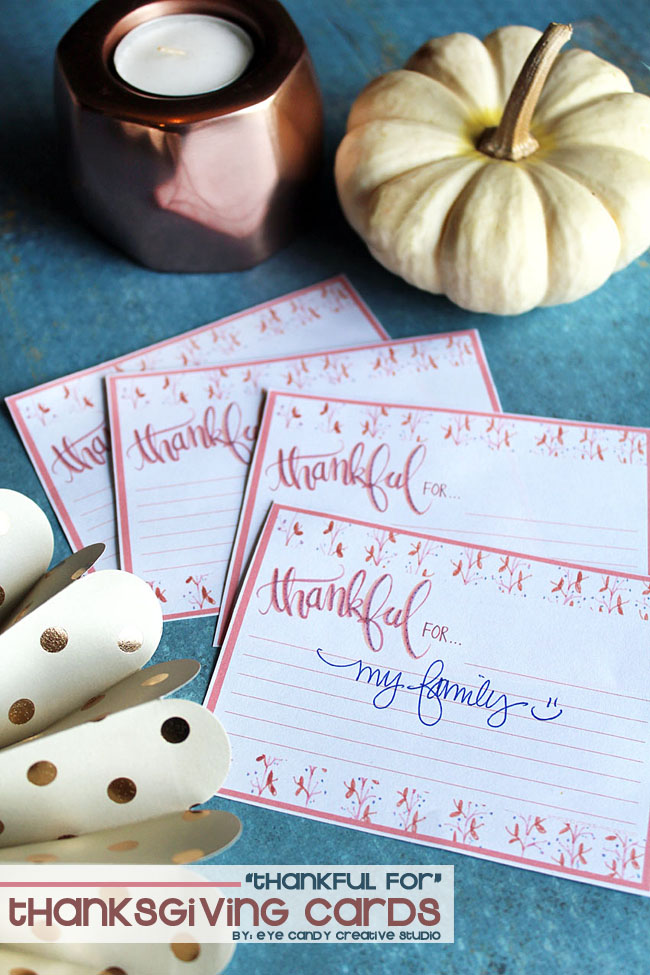 thankful
thankful
thankful FOR...
thankful FOR...
my family
"THANKFUL FOR"
THANKSGIVING CARDS
BY: EYE CANDY CREATIVE STUDIO